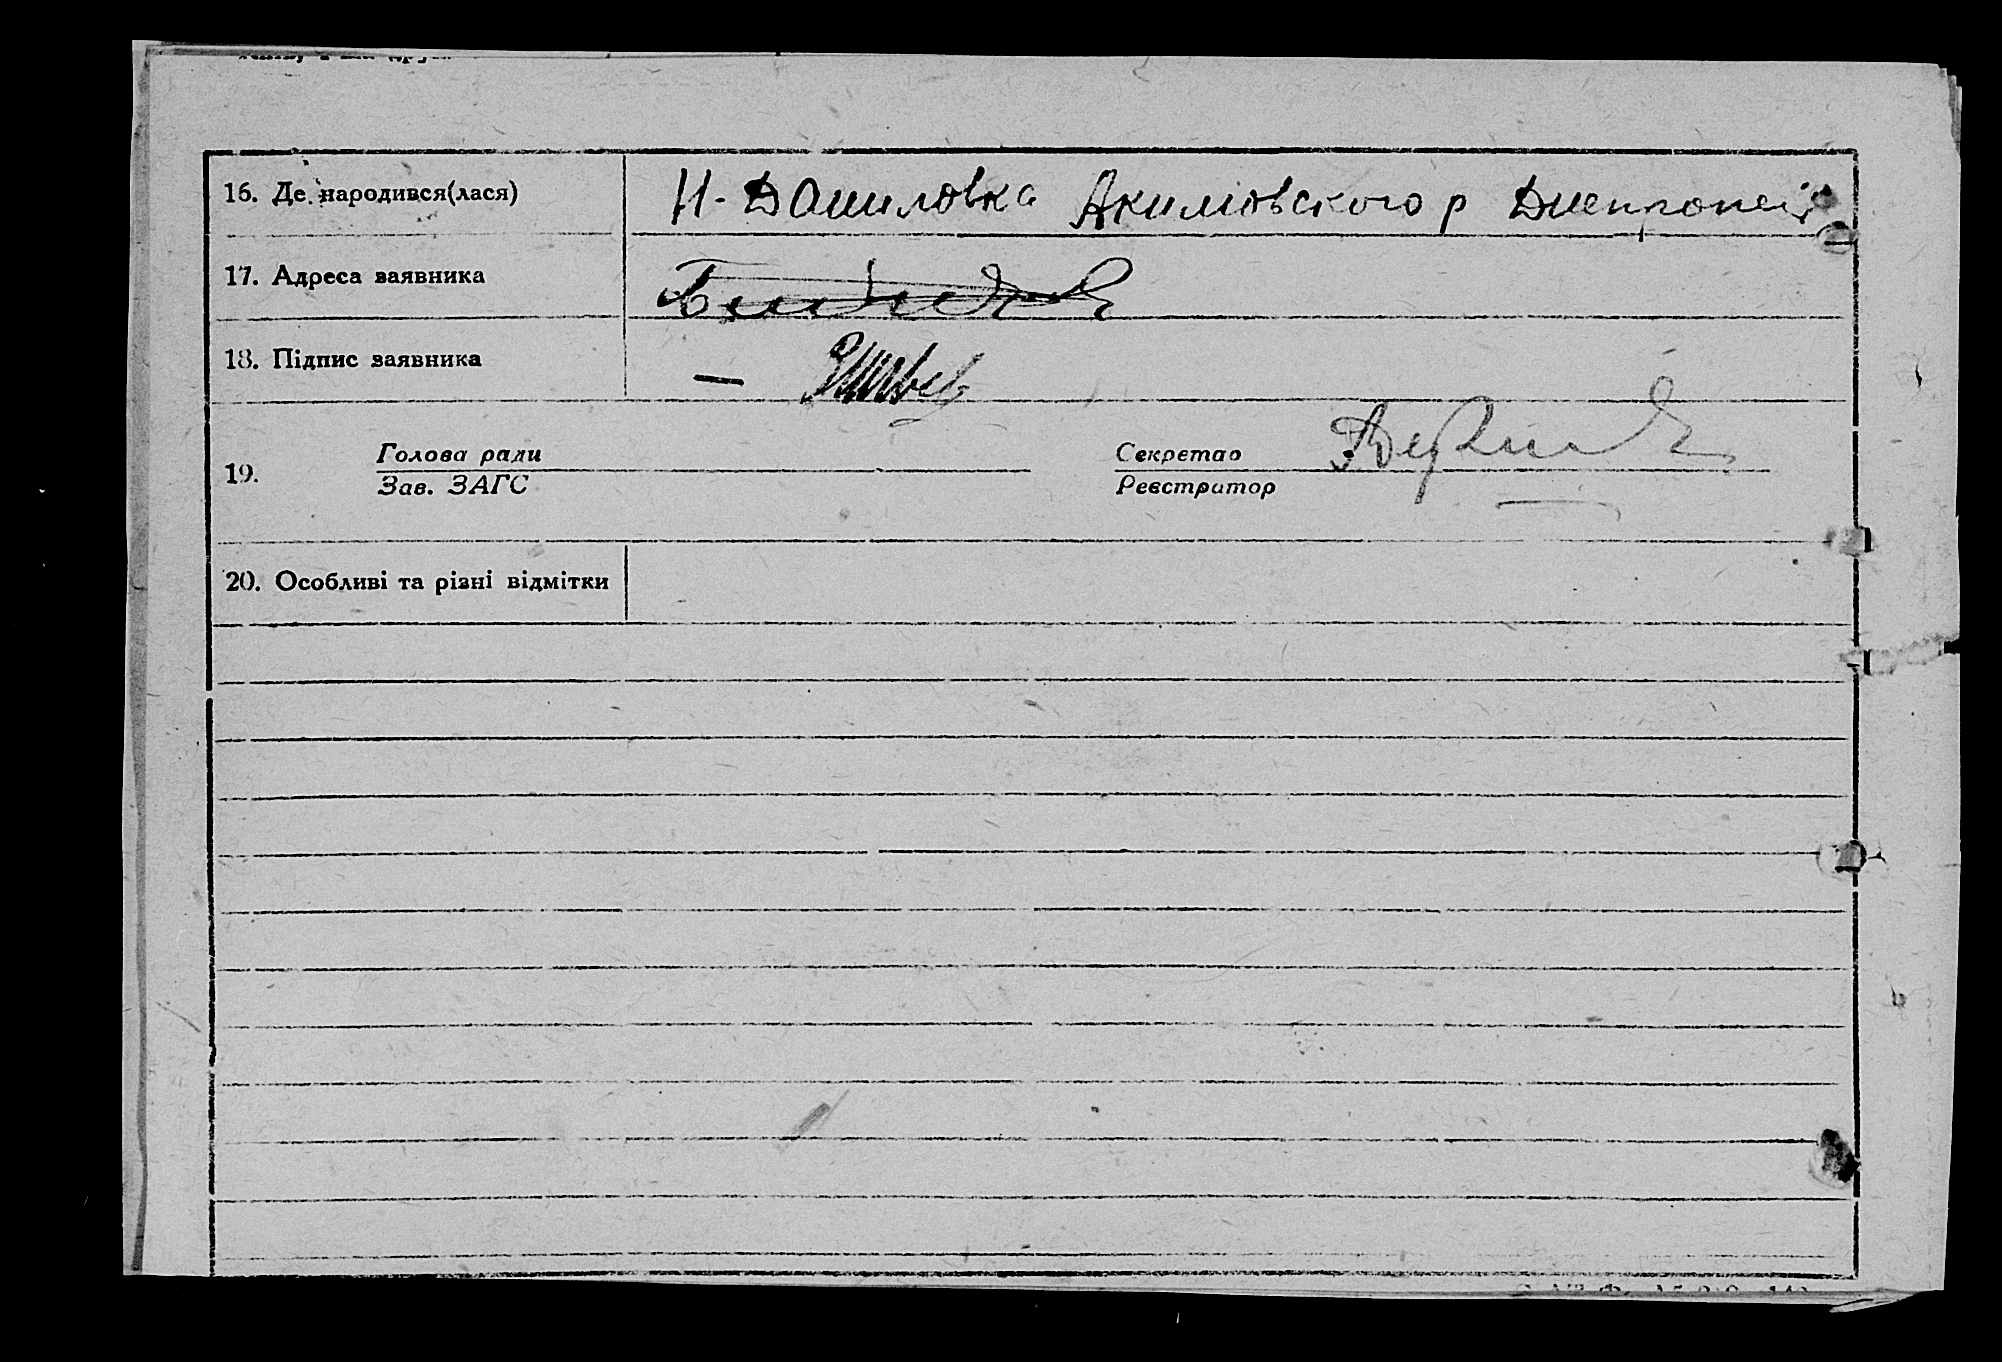 16. Де народився(лася) Н-Даниловка Акимовского р Днепропе
17. Адреса заявника
18. Підпис заявника —
19. Голова ради Секретар
Зав. ЗАГС Реєстратор
20. Особливі та різні відмітки